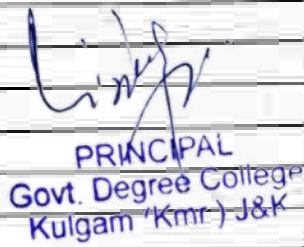 PRINCIPAL
Govt. Degree College
Kulgam (Kmr.) J&K